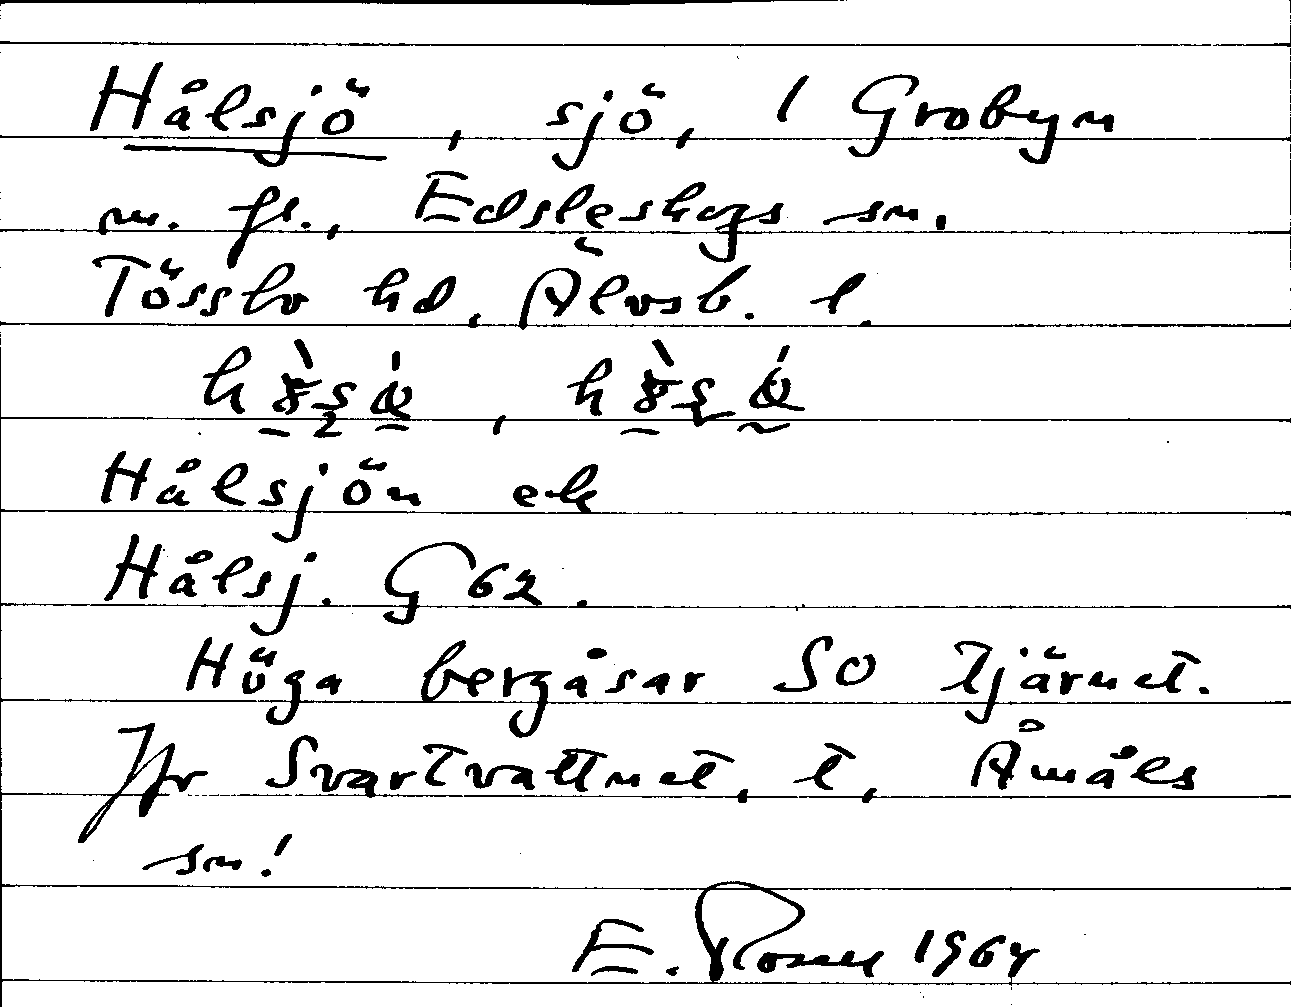 Hålsjö, sjö, 1 Grobyn
m. fl., Edsleskogs sn.
Tössbo hd, Älvsb. l.
Hålsjön ek
Hålsj. G 62.
Höga bergåsar SO tjärnet.
Jfr Svartvattnet, t, Åmåls
sn!
E. 1964